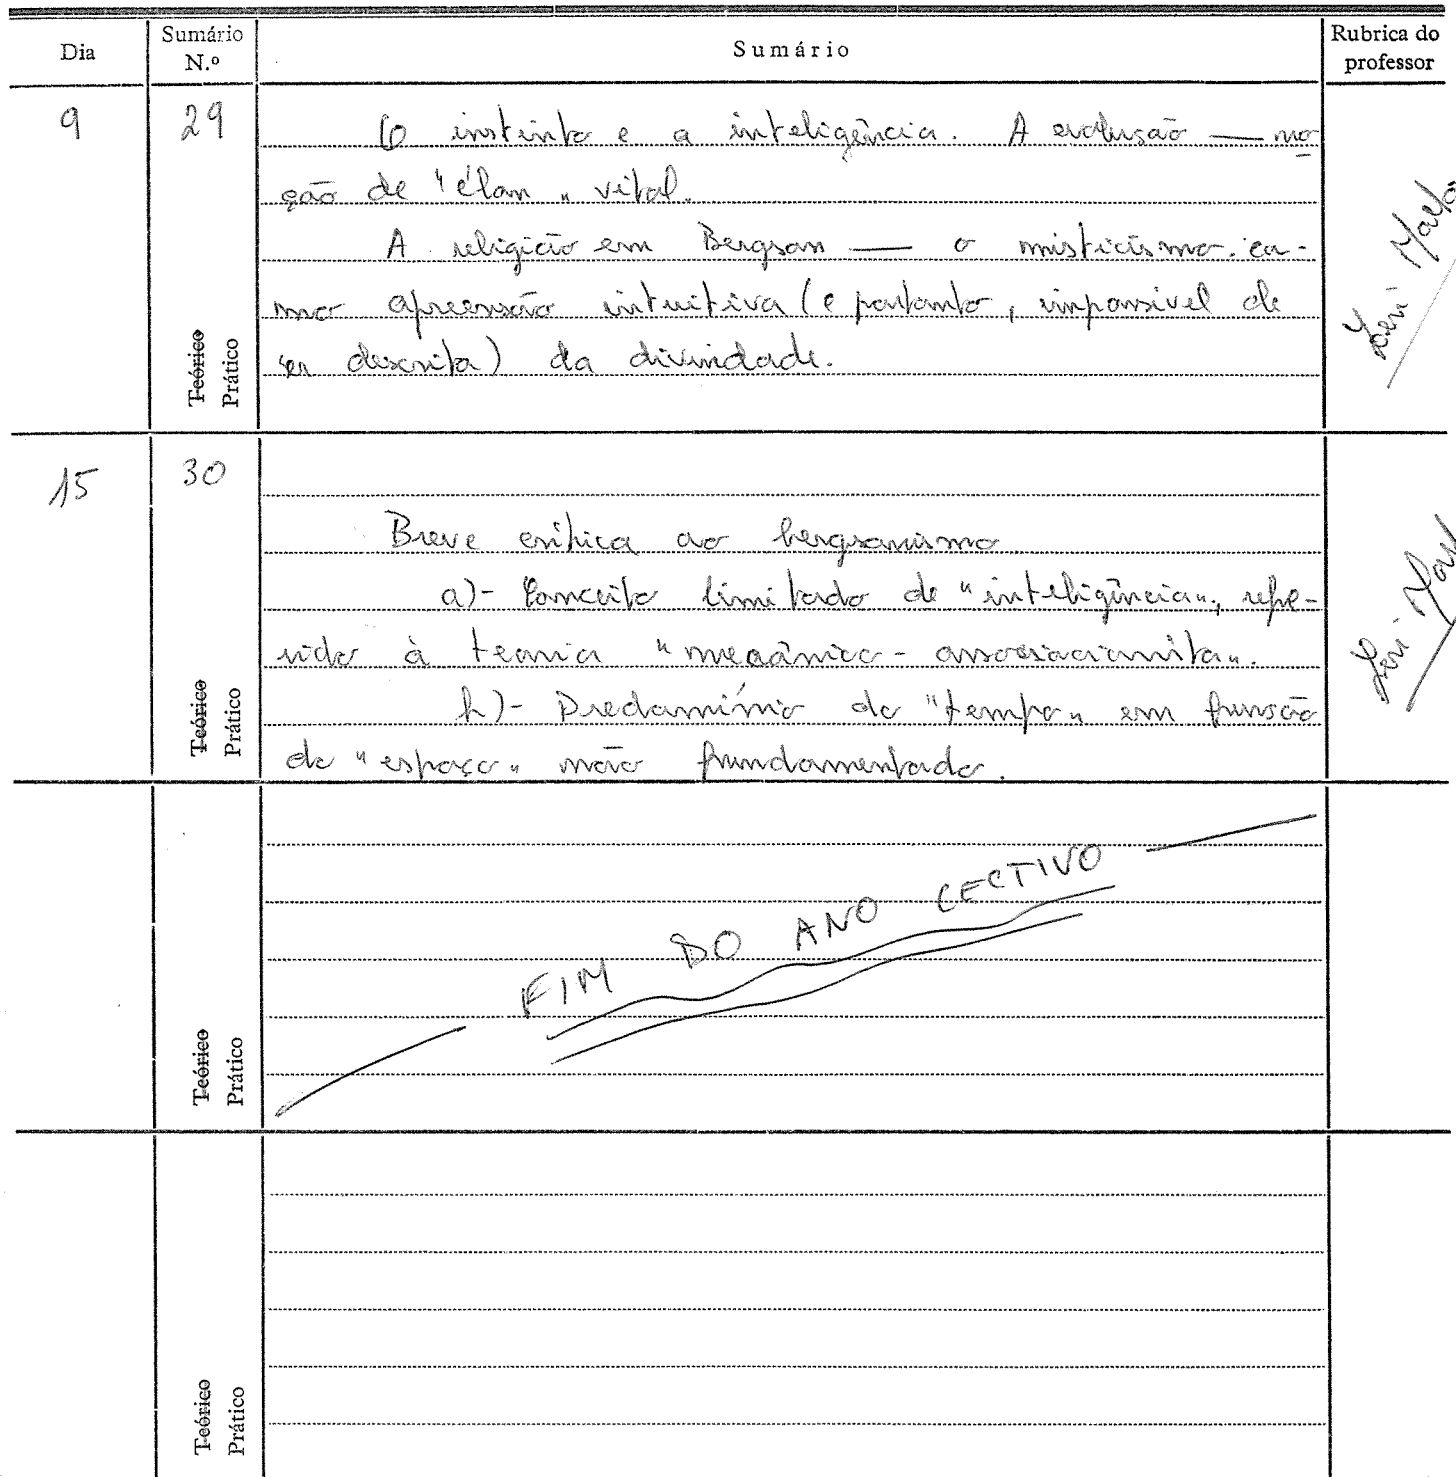 Dia
Sumário
N.º
Sumário
Rubrica do
professor
9
29
O instinto e a inteligência. A evolução — no
ção de "élan" vital.
A religião em Bergson — o misticismo co-
mo apreensão intuitiva (e portanto, impossível de
ser descrita) da divindade.
Teórico
Prático
15
30
Breve crítica ao bergsonismo
a)- Conceito limitado de "inteligência", refe-
rido à teoria "mecânico-associacionista".
b)- Predomínio do "tempo" em função
do "espaço" não fundamentado.
Teórico
Prático
FIM DO ANO LECTIVO
Teórico
Prático
Teórico
Prático